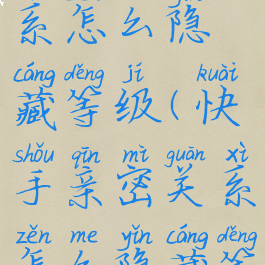 系怎么隐
cáng děng jí kuài
藏等级(快
shǒu qīn mì guān xì
手亲密关系
zěn me yǐn cáng děng
怎么隐藏等